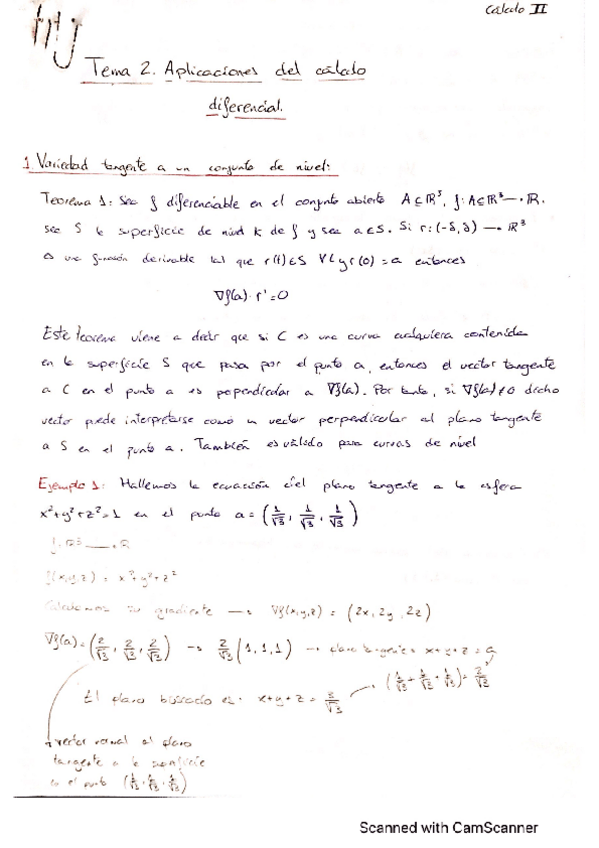 Cálculo II
Tema 2. Aplicaciones del cálculo
diferencial.
1 Variedad tangente a un conjunto de nivel:
Teorema 1: Sea f diferenciable en el conjunto abierto A⊆ℝ³, f: A⊆ℝ³→ℝ.
sea S la superficie de nivel k de f y sea a∈S. Si r: (-δ,δ) → ℝ³
es una función derivable tal que r(t)∈S ∀t y r(0)=a entonces
∇f(a)·r'=0
Este teorema viene a decir que si C es una curva cualquiera contenida
en la superficie S que pasa por el punto a, entonces el vector tangente
a C en el punto a es perpendicular a ∇f(a). Por tanto, si ∇f(a)≠0 dicho
vector puede interpretarse como un vector perpendicular al plano tangente
a S en el punto a. También es válido para curvas de nivel
Ejemplo 1: Hallemos la ecuación del plano tangente a la esfera
x²+y²+z²=1 en el punto a=(1/√3, 1/√3, 1/√3)
f: ℝ³ → ℝ
f(x,y,z) = x²+y²+z²
Calculamos su gradiente → ∇f(x,y,z) = (2x, 2y, 2z)
∇f(a)=(2/√3, 2/√3, 2/√3) → 2/√3 (1,1,1) → plano tangente x+y+z=a
El plano buscado es: x+y+z = 3/√3
vector normal al plano
tangente a la superficie
en el punto (1/√3, 1/√3, 1/√3)
Scanned with CamScanner